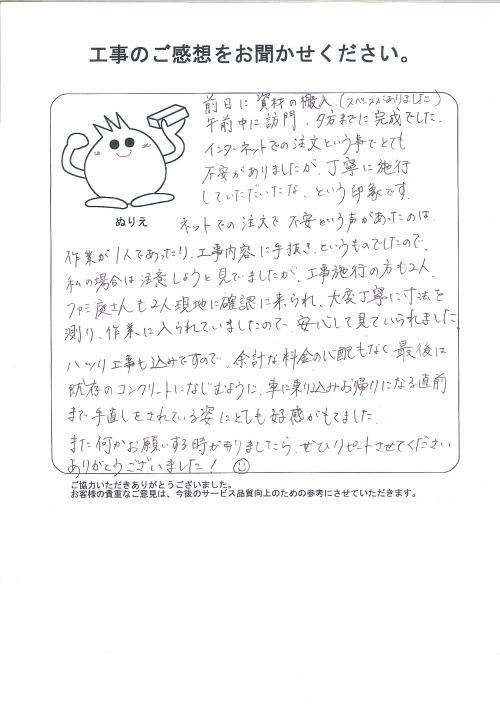 工事のご感想をお聞かせください。
前日に資材の搬入。(スペースがありました)
午前中に訪問、夕方までに完成でした。
インターネットでの注文という事でとても
不安がありましたが、丁寧に施行
していただいたな、という印象です。
ぬりえ
ネットでの注文で不安という声があったのは、
作業が1人であったり、工事内容に手抜き、というものでしたので、
私の場合は注意しようと見ていましたが、工事施行の方も2人、
ファミ庭さんも2人現地に確認に来られ、大変丁寧に寸法を
測り、作業に入られていましたので、安心して見ていられました。
ハツリ工事も込みですので、余計な料金の心配もなく、最後は
既存のコンクリートになじむように、車に乗り込みお帰りになる直前
まで手直しをされている姿にとても好感がもてました。
また何かお願いする時がありましたら、ぜひリピートさせてください
ありがとうございました!
ご協力いただきありがとうございました。
お客様の貴重なご意見は、今後のサービス品質向上のための参考にさせていただきます。